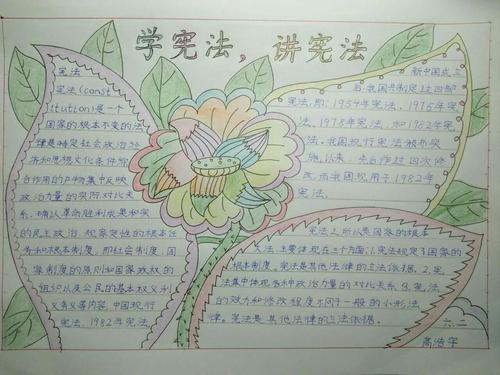 学宪法，讲宪法
宪法
宪法(const
itution)是一个
国家的根本不变的法
律是特定社会政治经
济和思想文化条件综
合作用的产物集中反映
政治力量的实际对比关
系，确认革命胜利成果和实
的民主政治，规定国家的根本任
务和根本制度。即社会制度、国
家制度的原则和国家政权的
组织以及公民的基本权义利
义务等内容，中国现行
宪法，1982年宪法
新中国成立
后，我国共制定过四部
宪法，即：1954年宪法、1975年宪
法、1978年宪法，和1982年宪
法。我国现行宪法被布实
施，以来，先后作过四次修
改，而我国现用于1982年
宪法。
宪法之所以是国家的根本
大法主要体现在三个方面，1.宪法规定了国家的
根本制度。宪法是其他法律的立法依据。2.宪
法集中体现各种政治力量的对比关系。3.宪法
的效力和修改程度不同于一般的小形法
律。宪法是其他法律的立法依据。
高浩宇